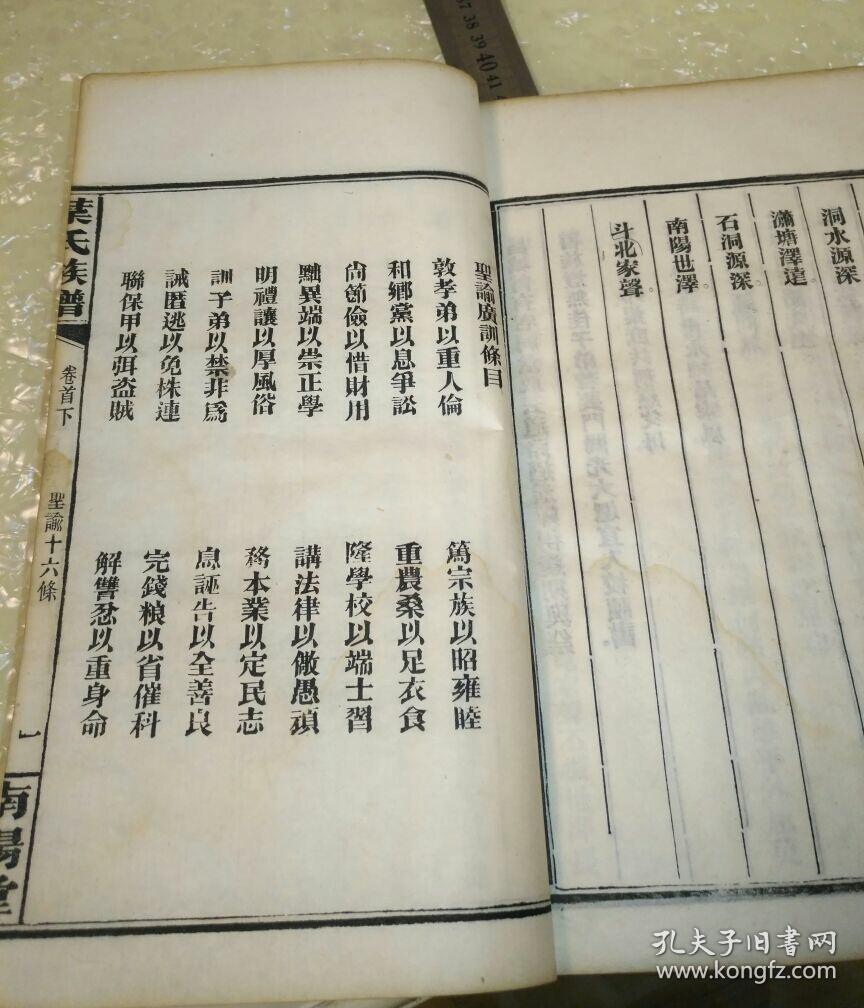 洞水源深
瀟塘澤遠
石洞源深
南陽世澤
斗北家聲
聖諭廣訓條目
敦孝弟以重人倫
篤宗族以昭雍睦
和鄉黨以息爭訟
重農桑以足衣食
尙節儉以惜財用
隆學校以端士習
黜異端以崇正學
講法律以儆愚頑
明禮讓以厚風俗
務本業以定民志
訓子弟以禁非爲
息誣告以全善良
誡匿逃以免株連
完錢粮以省催科
聯保甲以弭盜賊
解讐忿以重身命
葉氏族譜
卷首下
聖諭十六條
一
南陽堂
37 38 39 40 41
孔夫子旧书网
www.kongfz.com